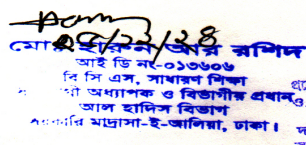 ২৫/১১/২৪
মোঃ হারুন আর রশিদ
আই ডি নং-০১৩৬০৬
বি সি এস, সাধারণ শিক্ষা
অধ্যাপক ও বিভাগীয় প্রধান
আল হাদিস বিভাগ
মাদ্রাসা-ই-আলিয়া, ঢাকা।